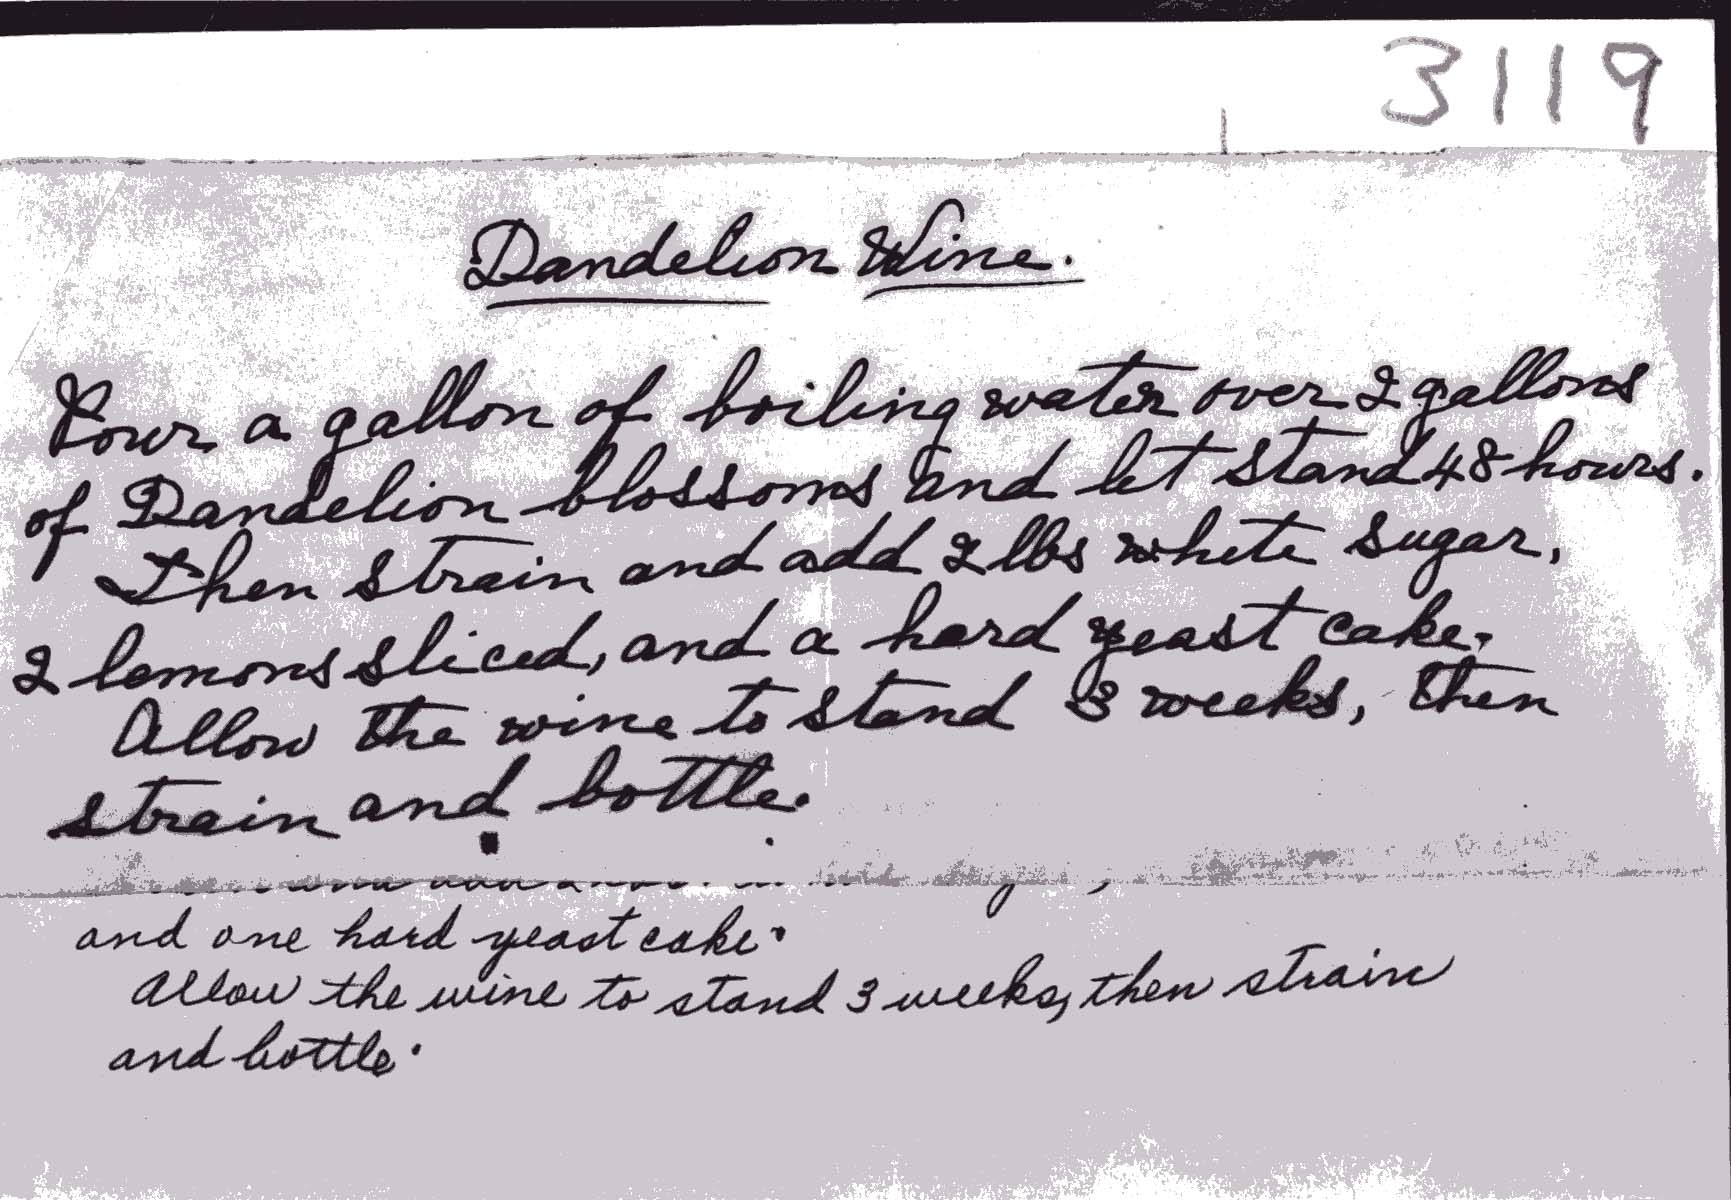 3119
Dandelion Wine.
Pour a gallon of boiling water over 2 gallons
of Dandelion blossoms and let stand 48 hours.
Then strain and add 2 lbs white sugar,
2 lemons sliced, and a hard yeast cake.
Allow the wine to stand 3 weeks, then
strain and bottle.
and one hard yeast cake.
Allow the wine to stand 3 weeks, then strain
and bottle.